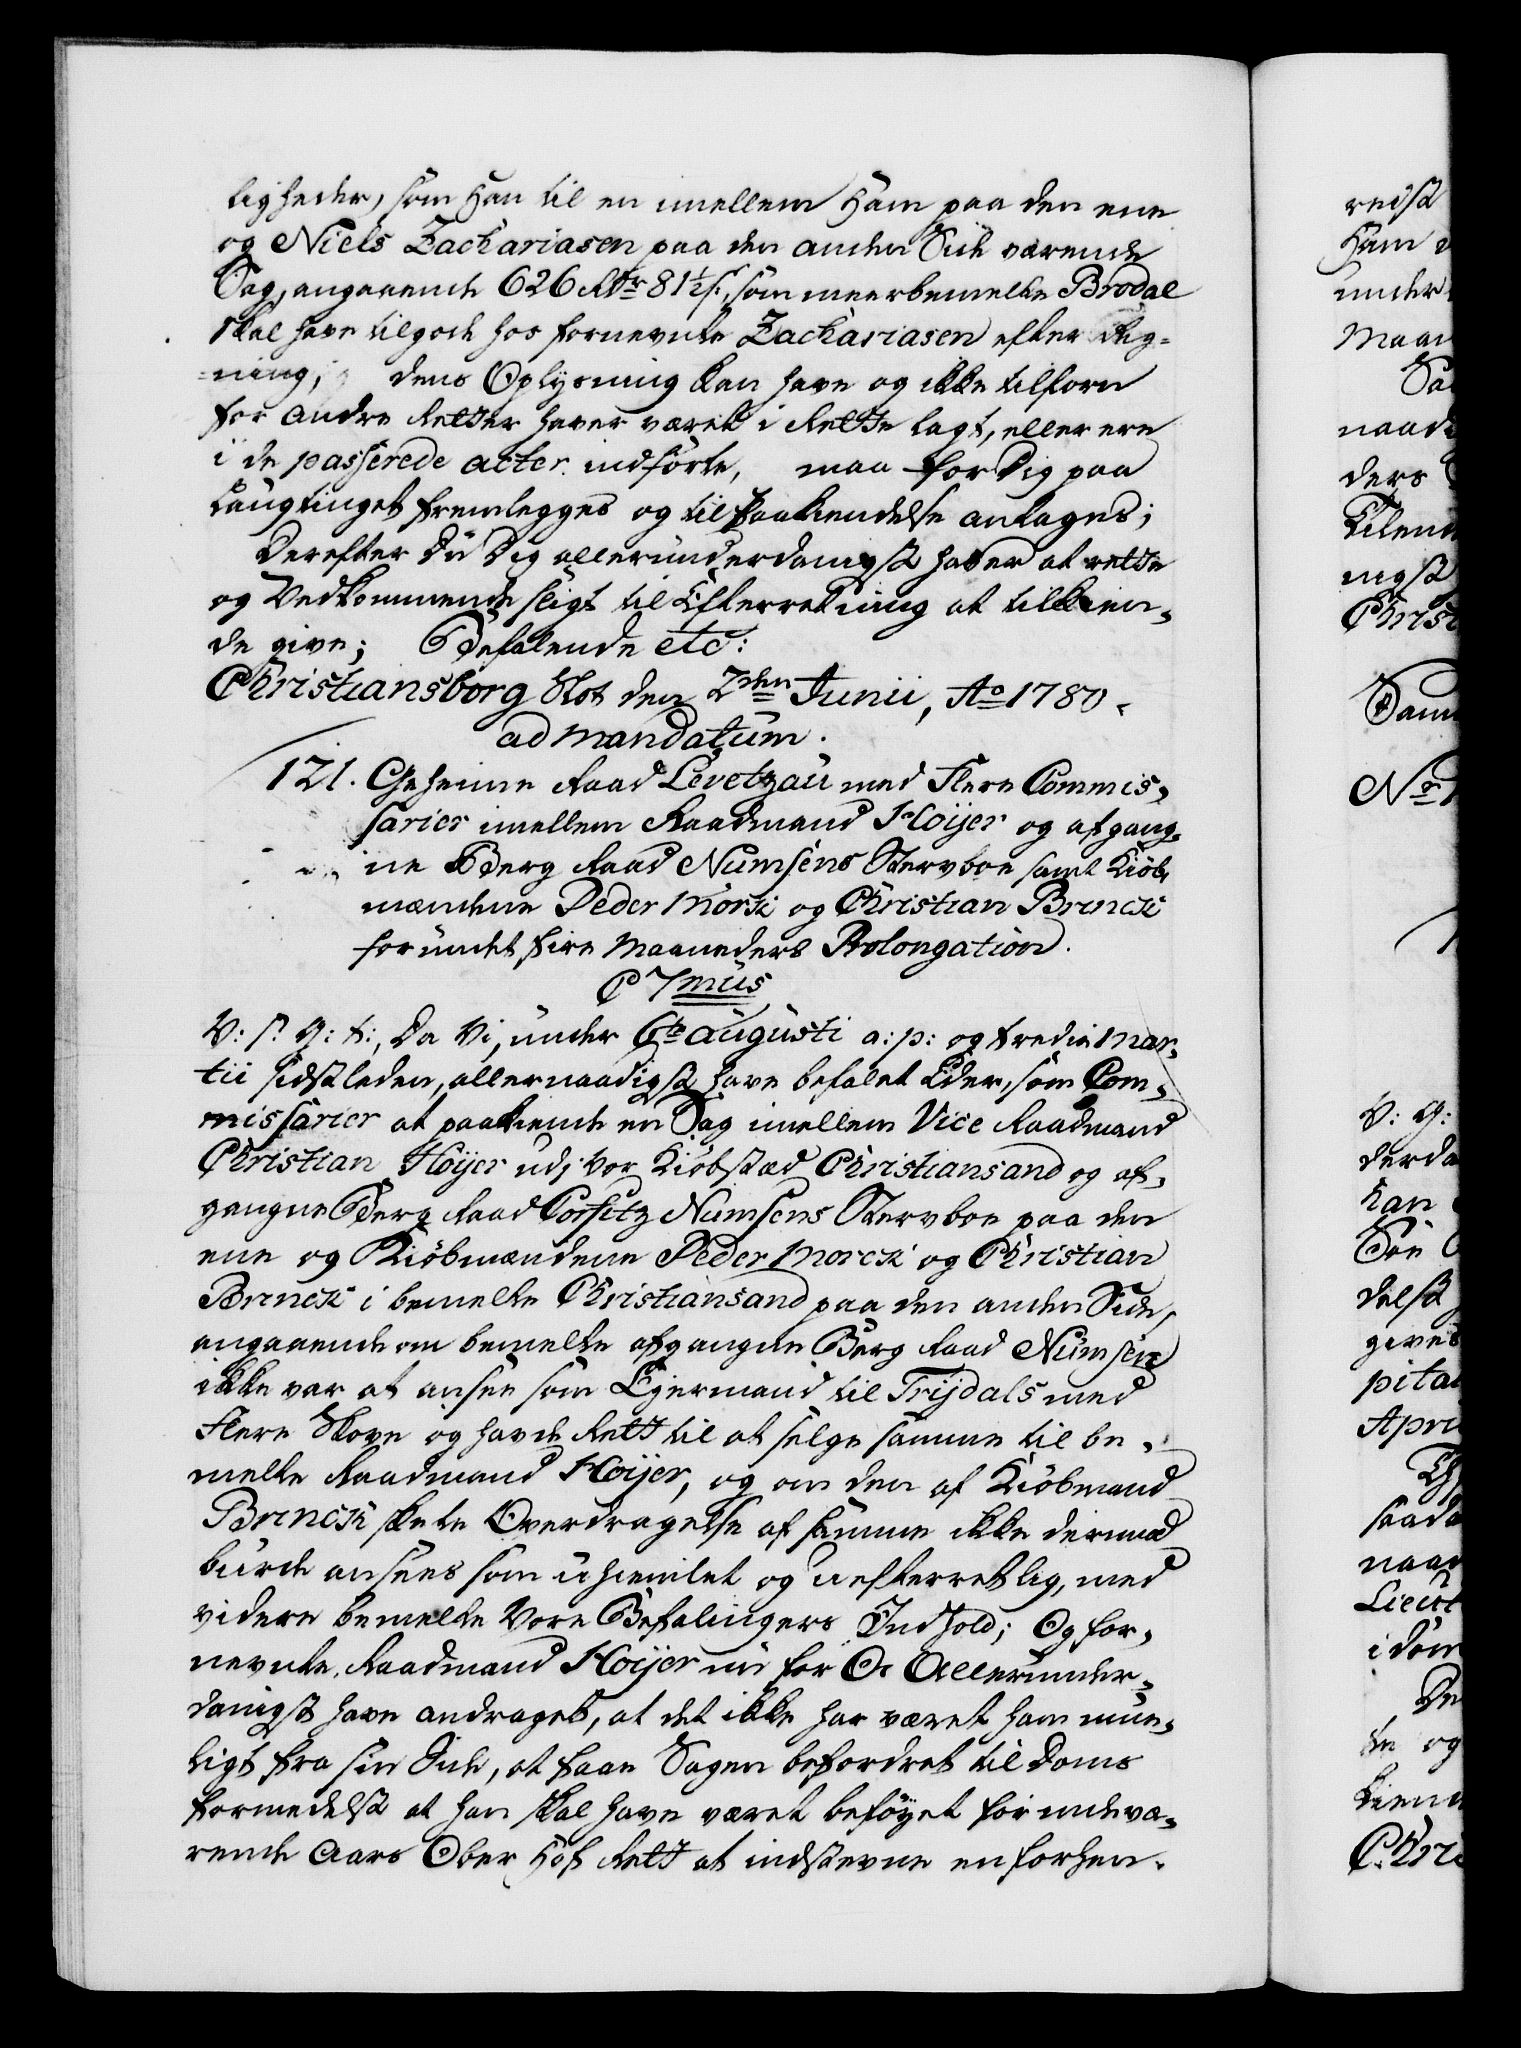 ligheder, som Han til en imellem Ham paa den ene
og Niels Zachariasen paa den anden Side værende
Sag, angaaende 626 Rdr 81½ s., som meerbemelte Brodal
skal have tilgode hos fornevnte Zachariasen efter Reg-
-ning, dens Oplysning kan have og ikke tilforn
for andre Retter haver været i Rette lagt, eller ere
i de passerede acter indførte, maa for Dig paa
Laugtinget fremlegges og til Paakiendelse antages;
Derefter Du Dig allerunderdanigst haver at rette
og Vedkommende sligt til Efterretning at tilkien-
de give; Befalende etc:
Christiansborg Slot den 2den Junii, Ao 1780.
ad mandatum.
121. Geheime Raad Levetzau med Flere Commis-
sarier imellem Raadmand Høijer og afgang-
ne Berg Raad Numsens Stervboe samt Kiøb-
mændene Peder Mørk og Christian Brinck
forundt fire Maaneders Prolongation.
C 7mus
V: s: G: t:, Da Vi, under 6te Augusti a: p: og tredie Mar-
tii sidstleden, allernaadigst have befalet Eder, som Com-
missarier at paakiende en Sag imellem Vice Raadmand
Christian Høijer udj Vor Kiøbstæd Christiansand og af-
gangne Berg Raad Numsens Stervboe paa den
ene og Kiøbmændene Peder Morck og Christian
Brinck i bemelte Christiansand paa den anden Side,
angaaende om bemelte afgangne Berg Raad Numsen
ikke var at ansee som Ejermand til Trijdals med
Flere Skove og havde Rett til at selge samme til be-
melte Raadmand Høijer, og om den af Kiøbmand
Brinck skete Overdragelse af samme ikke dermed
burde ansees som uhiemlet og uefterretlig, med
videre bemelte Vore Befalingers Indhold; Og for-
nevnte Raadmand Høijer nu for Os Allerunder-
danigst have andraget, at det ikke har været ham mue-
ligt fra sin Side, at faae Sagen befordret til Doms
formedelst at han skal have været beføyet for indevæ-
rende Aars Ober Hof Rett at indstevne en forhen-